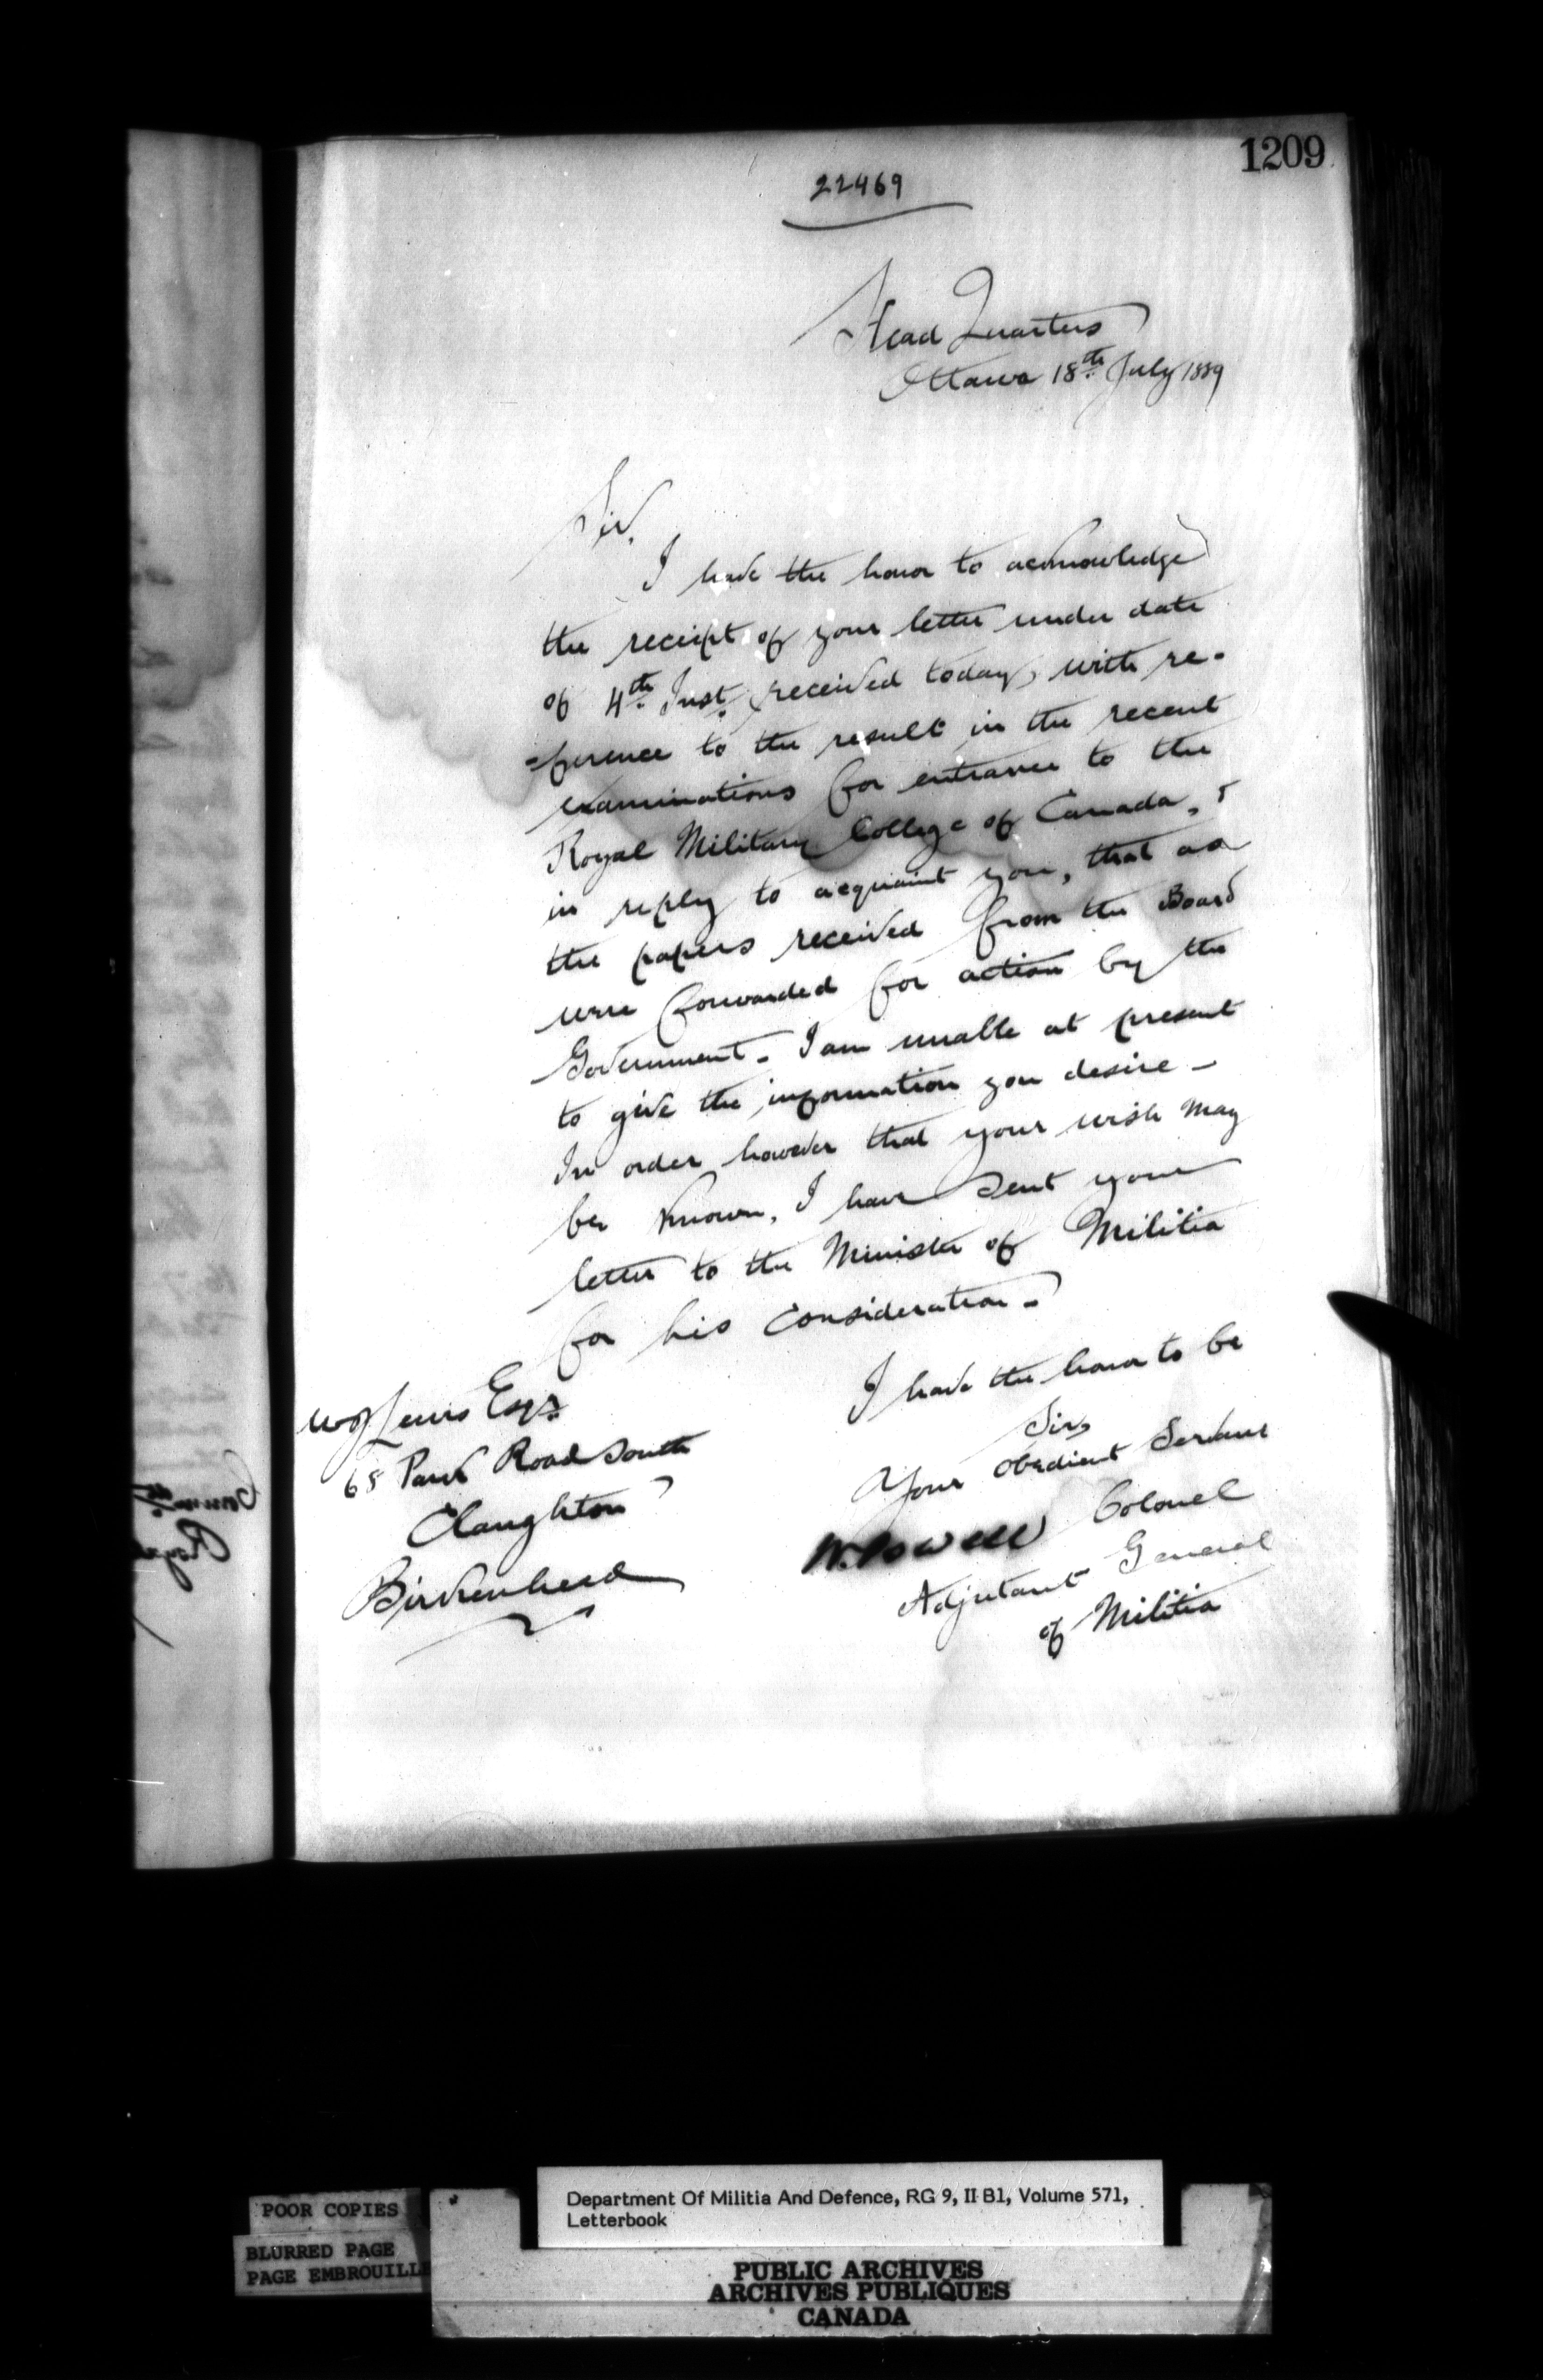 1209
22469
Head Quarters
Ottawa 18th July 1889
Sir,
I have the honor to acknowledge
the receipt of your letter under date
of 4th Inst, received today, with re-
=ference to the result in the recent
examinations for entrance to the
Royal Military College of Canada, &
in reply to acquaint you, that as
the papers received from the Board
were forwarded for action by the
Government - I am unable at present
to give the information you desire -
In order however that your wish may
be known, I have sent your
letter to the Minister of Militia
for his consideration -
I have the honor to be
Sir,
Your Obedient Servant
W. Powell Colonel
Adjutant General
of Militia
Lewis Esqr.
68 Park Road South
Claughton
Birkenhead
POOR COPIES
BLURRED PAGE
PAGE EMBROUILLE
Department Of Militia And Defence, RG 9, II B1, Volume 571,
Letterbook
PUBLIC ARCHIVES
ARCHIVES PUBLIQUES
CANADA